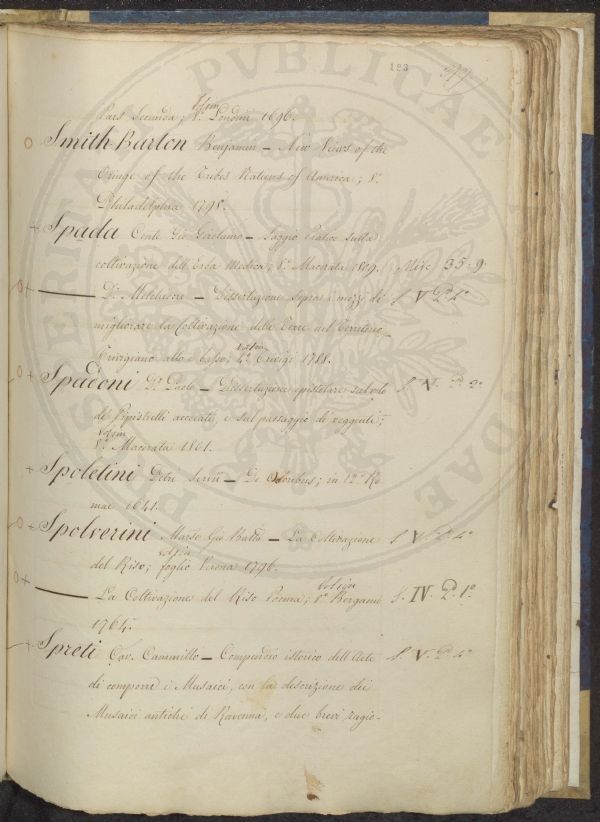 123
Pars Secunda; 8.º Londini 1696.
vol. un
Smith Barton Benjamin – New Views of the
Oringe of the Tribes Nations of America; 8.º
Philadelphia 1798.
Spada Conte Gio Girolamo – Saggio Pratico sulla
coltivazione dell'Erba Medica; 8.º Macerata 1819. Misc 35-9.
— D.n Melchiore – Dissertazione sopra i mezzi di S. V P.º 4.º
migliorare la Coltivazione delle Terre nel Territorio
Trivigiano alto e basso; vol. un 4.º Trivigi 1788.
Spadoni D.r Paolo – Dissertazione epistolare sul volo S. V. P. 2.º
de' Pipistrelli acciecati, e sul passaggio di veggenti;
vol. un
8.º Macerata 1801.
Spoletini Petri Servii – De Odoribus; in 12.º Ro
mae 1641.
Spolverini Marse Gio Batta – La Coltivazione S. V P. 4.º
del Riso; vol. un foglio Verona 1796.
— La Coltivazione del Riso Poema; vol. un 8.º Bergamo S. IV. P. 1.º
1764.
Spreti Cav. Cammillo – Compendio istorico dell'Arte S. V. P. 4.º
di comporre i Musaici, con la descrizione dei
Musaici antichi di Ravenna, e due brevi ragio-
PUBLICAE